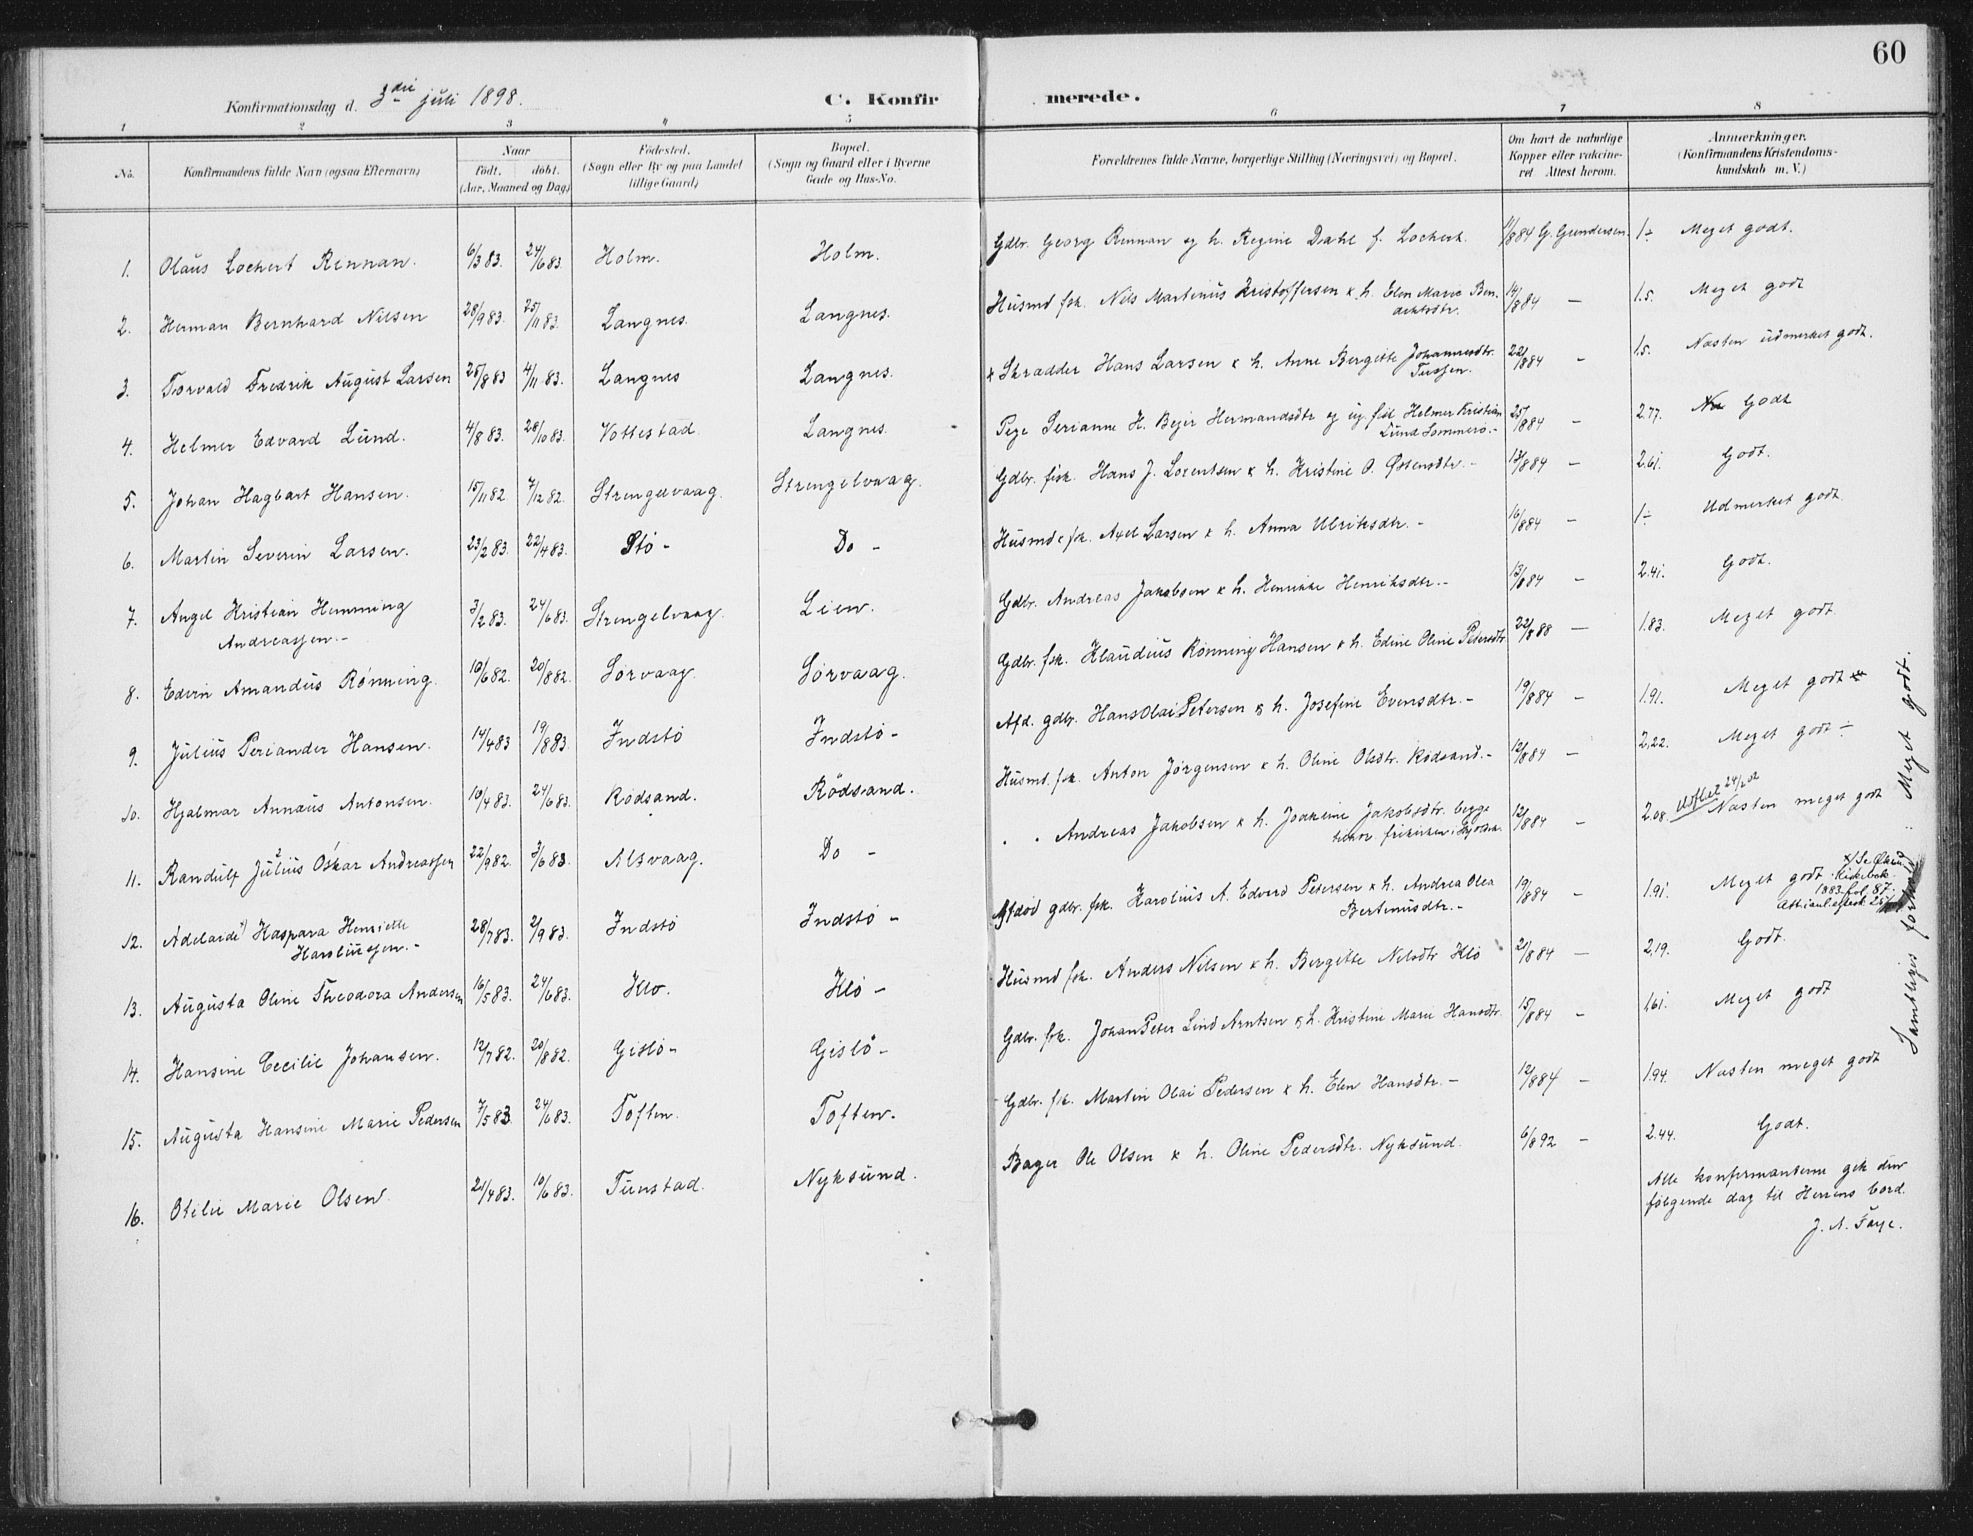 60
Konfirmationsdag d. 3die juli 1898.
C. Konfirmerede.
1 2 3 4 5 6 7 8
No. Konfirmandens fulde Navn (ogsaa Efternavn)
Naar født. døbt. (Aar, Maaned og Dag)
Fødested. (Sogn eller By og paa Landet tillige Gaard)
Bopæl. (Sogn og Gaard eller i Byerne Gade og Hus-No.
Forældrenes fulde Navne, borgerlige Stilling (Næringsvei) og Bopæl.
Om havt de naturlige Kopper eller vakcineret Attest herom.
Anmærkninger. (Konfirmandens Kristendomskundskab m. V.)
1. Olaus Lochert Rennan. 6/3 83. 24/6 83. Holm. Holm. Gdbr. Georg Rennan og h. Regine Dahl f. Lochert. 11/8 84 G. Gundersen. 1÷ Meget godt.
2. Herman Bernhard Nilsen 28/9 83. 25/11 83. Langnes. Langnes. Husmd fsk. Nils Martinus Kristoffersen x h. Elen Marie Ben-
14/8 84 — 1.5. Meget godt
3. Torvald Fredrik August Larsen 25/8 83 4/11 83. Langnes Langnes. x Skrædder Hans Larsen x h. Anne Bergitte Johannesdtr. 22/8 84 - 1.5. Næsten udmerket godt.
4. Helmer Edvard Lund. 4/8 83. 28/10 83. Vottestad. Langnes. Pige Serianne H. Bejer Hermandsdtr og ug. fsk. Helmer Kristian
Lund Sommerø.- 25/8 84 - 2.77. Godt
5. Johan Hagbart Hansen. 15/11 82 7/12 82. Strengelvaag. Strengelvaag. Gdbr. fisk. Hans J. Lorentsen x h. Kristine O. Østensdtr. - 13/8 84 — 2.61. Godt.
6. Martin Severin Larsen. 23/2 83. 22/4 83. Stø - Do - Husmd. fsk. Axel Larsen x h. Anna Ulriksdtr. - 16/8 84 - 1÷ Udmerket godt.
7. Angel Kristian Hemming
Andreassen.- 3/2 83. 24/6 83. Strengelvaag. Lien. Gdbr. Andreas Jakobsen x h. Henrikke Henriksdtr. - 13/8 84 - 2.41. Godt.
8. Edvin Amandus Rønning. 10/6 82. 20/8 82. Sørvaag. Sørvaag. Gdbr. fsk. Klaudius Rønning Hansen x h. Edine Oline Petersdtr. 22/8 88 — 1.83. Meget godt.
9. Julius Periander Hansen. 14/4 83 19/8 83. Indstø Indstø - Afd. gdbr. Hans Olai Petersen og h. Josefine Evensdtr. - 19/8 84 - 1.91. Meget godt
10. Hjalmar Annæus Antonsen. 10/4 83. 24/6 83. Rødsand. Rødsand. Husmd. fsk. Anton Jørgensen x h. Oline Olsdtr. Rødsand. - 12/8 84 — 2,22. Meget godt ÷
11. Randulf Julius Oskar Andreassen 22/9 82. 3/6 83. Alsvaag. Do - . . Andreas Jakobsen x h. Joakine Jakobsdtr. begge
12/8 84 - 2.08. Udflyt 24/2 02 Næsten meget godt
12. Adelaide Kaspara Henriette
Karoliussen. - 28/7 83. 2/9 83. Indstø Indstø - Afdød gdbr. fsk. Karolius A. Edvard Petersen x h. Andrea Olea
Bertinusdtr. - 19/8 84 - 1.91. Meget godt. x/ Se
Kirkebok
1883 fol. 87.
13. Augusta Oline Theodora Andersen 16/5 83. 24/6 83. Klo. Klø - Husmd fsk. Anders Nilsen x h. Bergitte Nilsdtr Klø 21/8 84 — 2,19. Godt.
14. Hansine Cecilie Johansen. 12/7 82. 20/8 82. Gislø - Gislø - Gdbr. fsk. Johan Peter Lind Arntsen og h. Kristine Marie Hansdtr. 15/8 84 - 1.61. Meget godt
15. Augusta Hansine Marie Pedersen 7/5 83. 24/6 83. Toften. Toften. Gdbr. fsk. Martin Olai Pedersen x h. Elen Hansdtr. - 12/8 84 - 1.94. Næsten meget godt
16. Otilie Marie Olsen. 21/4 83. 10/6 83. Tunstad. Nyksund. Bager Ole Olsen x h. Oline Pedersdtr. Nyksund. 6/8 92 - 2.44. Godt.
Alle konfirmanterne gik den
følgende dag til Herrens bord.
J. A. Faye.
Samtliges forhold: Meget godt.